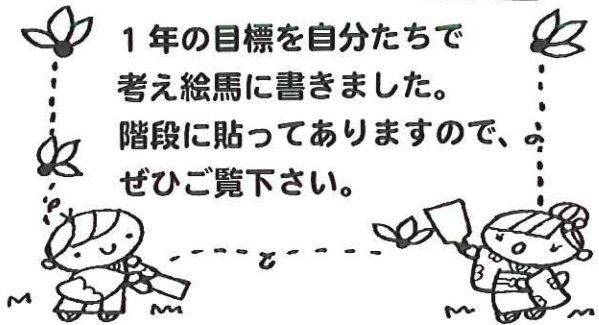 1年の目標を自分たちで
考え絵馬に書きました。
階段に貼ってありますので、
ぜひご覧下さい。